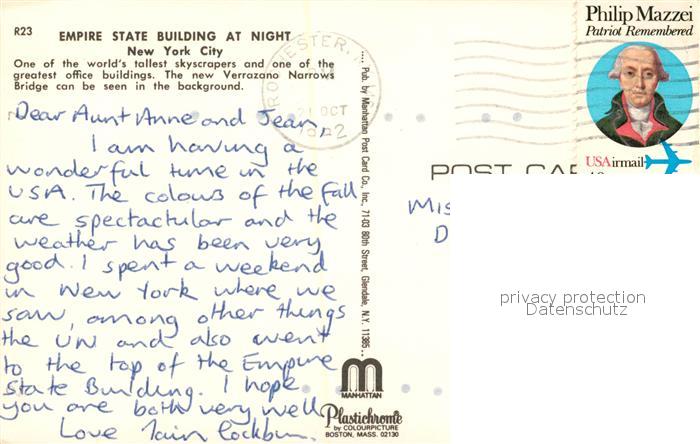 R23
EMPIRE STATE BUILDING AT NIGHT
New York City
One of the world's tallest skyscrapers and one of the
greatest office buildings. The new Verrazano Narrows
Bridge can be seen in the background.
Dear Aunt Anne and Jean,
I am having a
wonderful time in the
USA. The colours of the fall
are spectactular and the
weather has been very
good. I spent a weekend
in New York where we
saw, among other things
the UN and also went
to the top of the Empire
State Building. I hope
you are both very well
Love Iain Cockburn.
Pub. by Manhattan Post Card Co., Inc., 71-03 80th Street, Glendale, N.Y. 11385
MANHATTAN
Plastichrome
by COLOURPICTURE
BOSTON, MASS. 02130
21 OCT
Philip Mazzei
Patriot Remembered
USAirmail
POST CA
Mis
D
privacy protection
Datenschutz